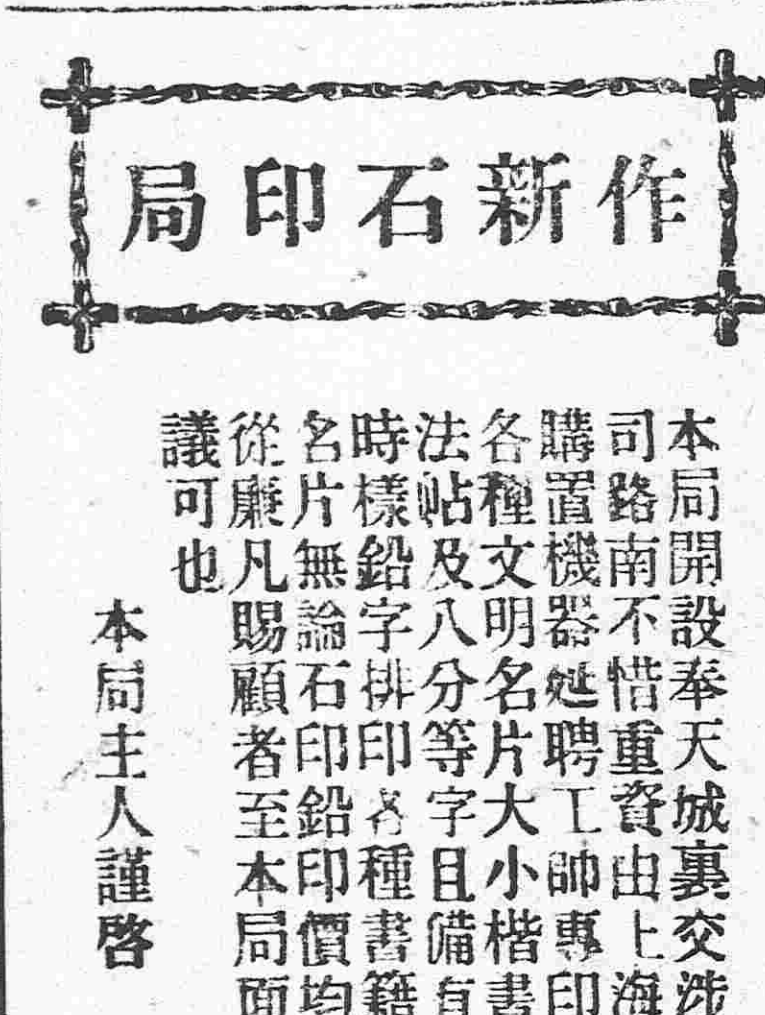 作新石印局
本局開設奉天城裏交涉
司路南不惜重資由上海
購置機器延聘工師專印
各種文明名片大小楷書
法帖及八分等字且備有
時樣鉛字排印各種書籍
名片無論石印鉛印價均
從廉凡賜顧者至本局面
議可也
本局主人謹啓